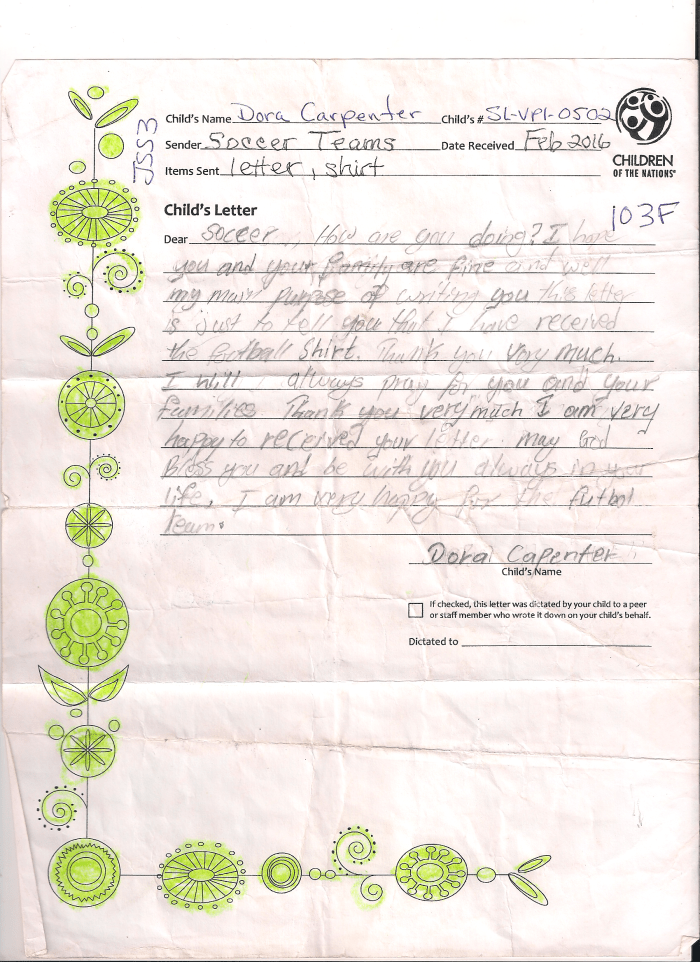 JSS3
Child's Name Dora Carpenter Child's # SL-VPI-0502
Sender Soccer Teams Date Received Feb 2016
Items Sent letter, shirt
CHILDREN
OF THE NATIONS
103F
Child's Letter
Dear Soccer, How are you doing? I have
you and your family are fine and well
my main purpose of writing you this letter
is just to tell you that I have received
the football shirt. Thank you very much.
I will always pray for you and your
families. Thank you very much I am very
happy to received your letter may God
Bless you and be with you always in your
life. I am very happy for the futbal
team.
Dora Capenter
Child's Name
If checked, this letter was dictated by your child to a peer
or staff member who wrote it down on your child's behalf.
Dictated to